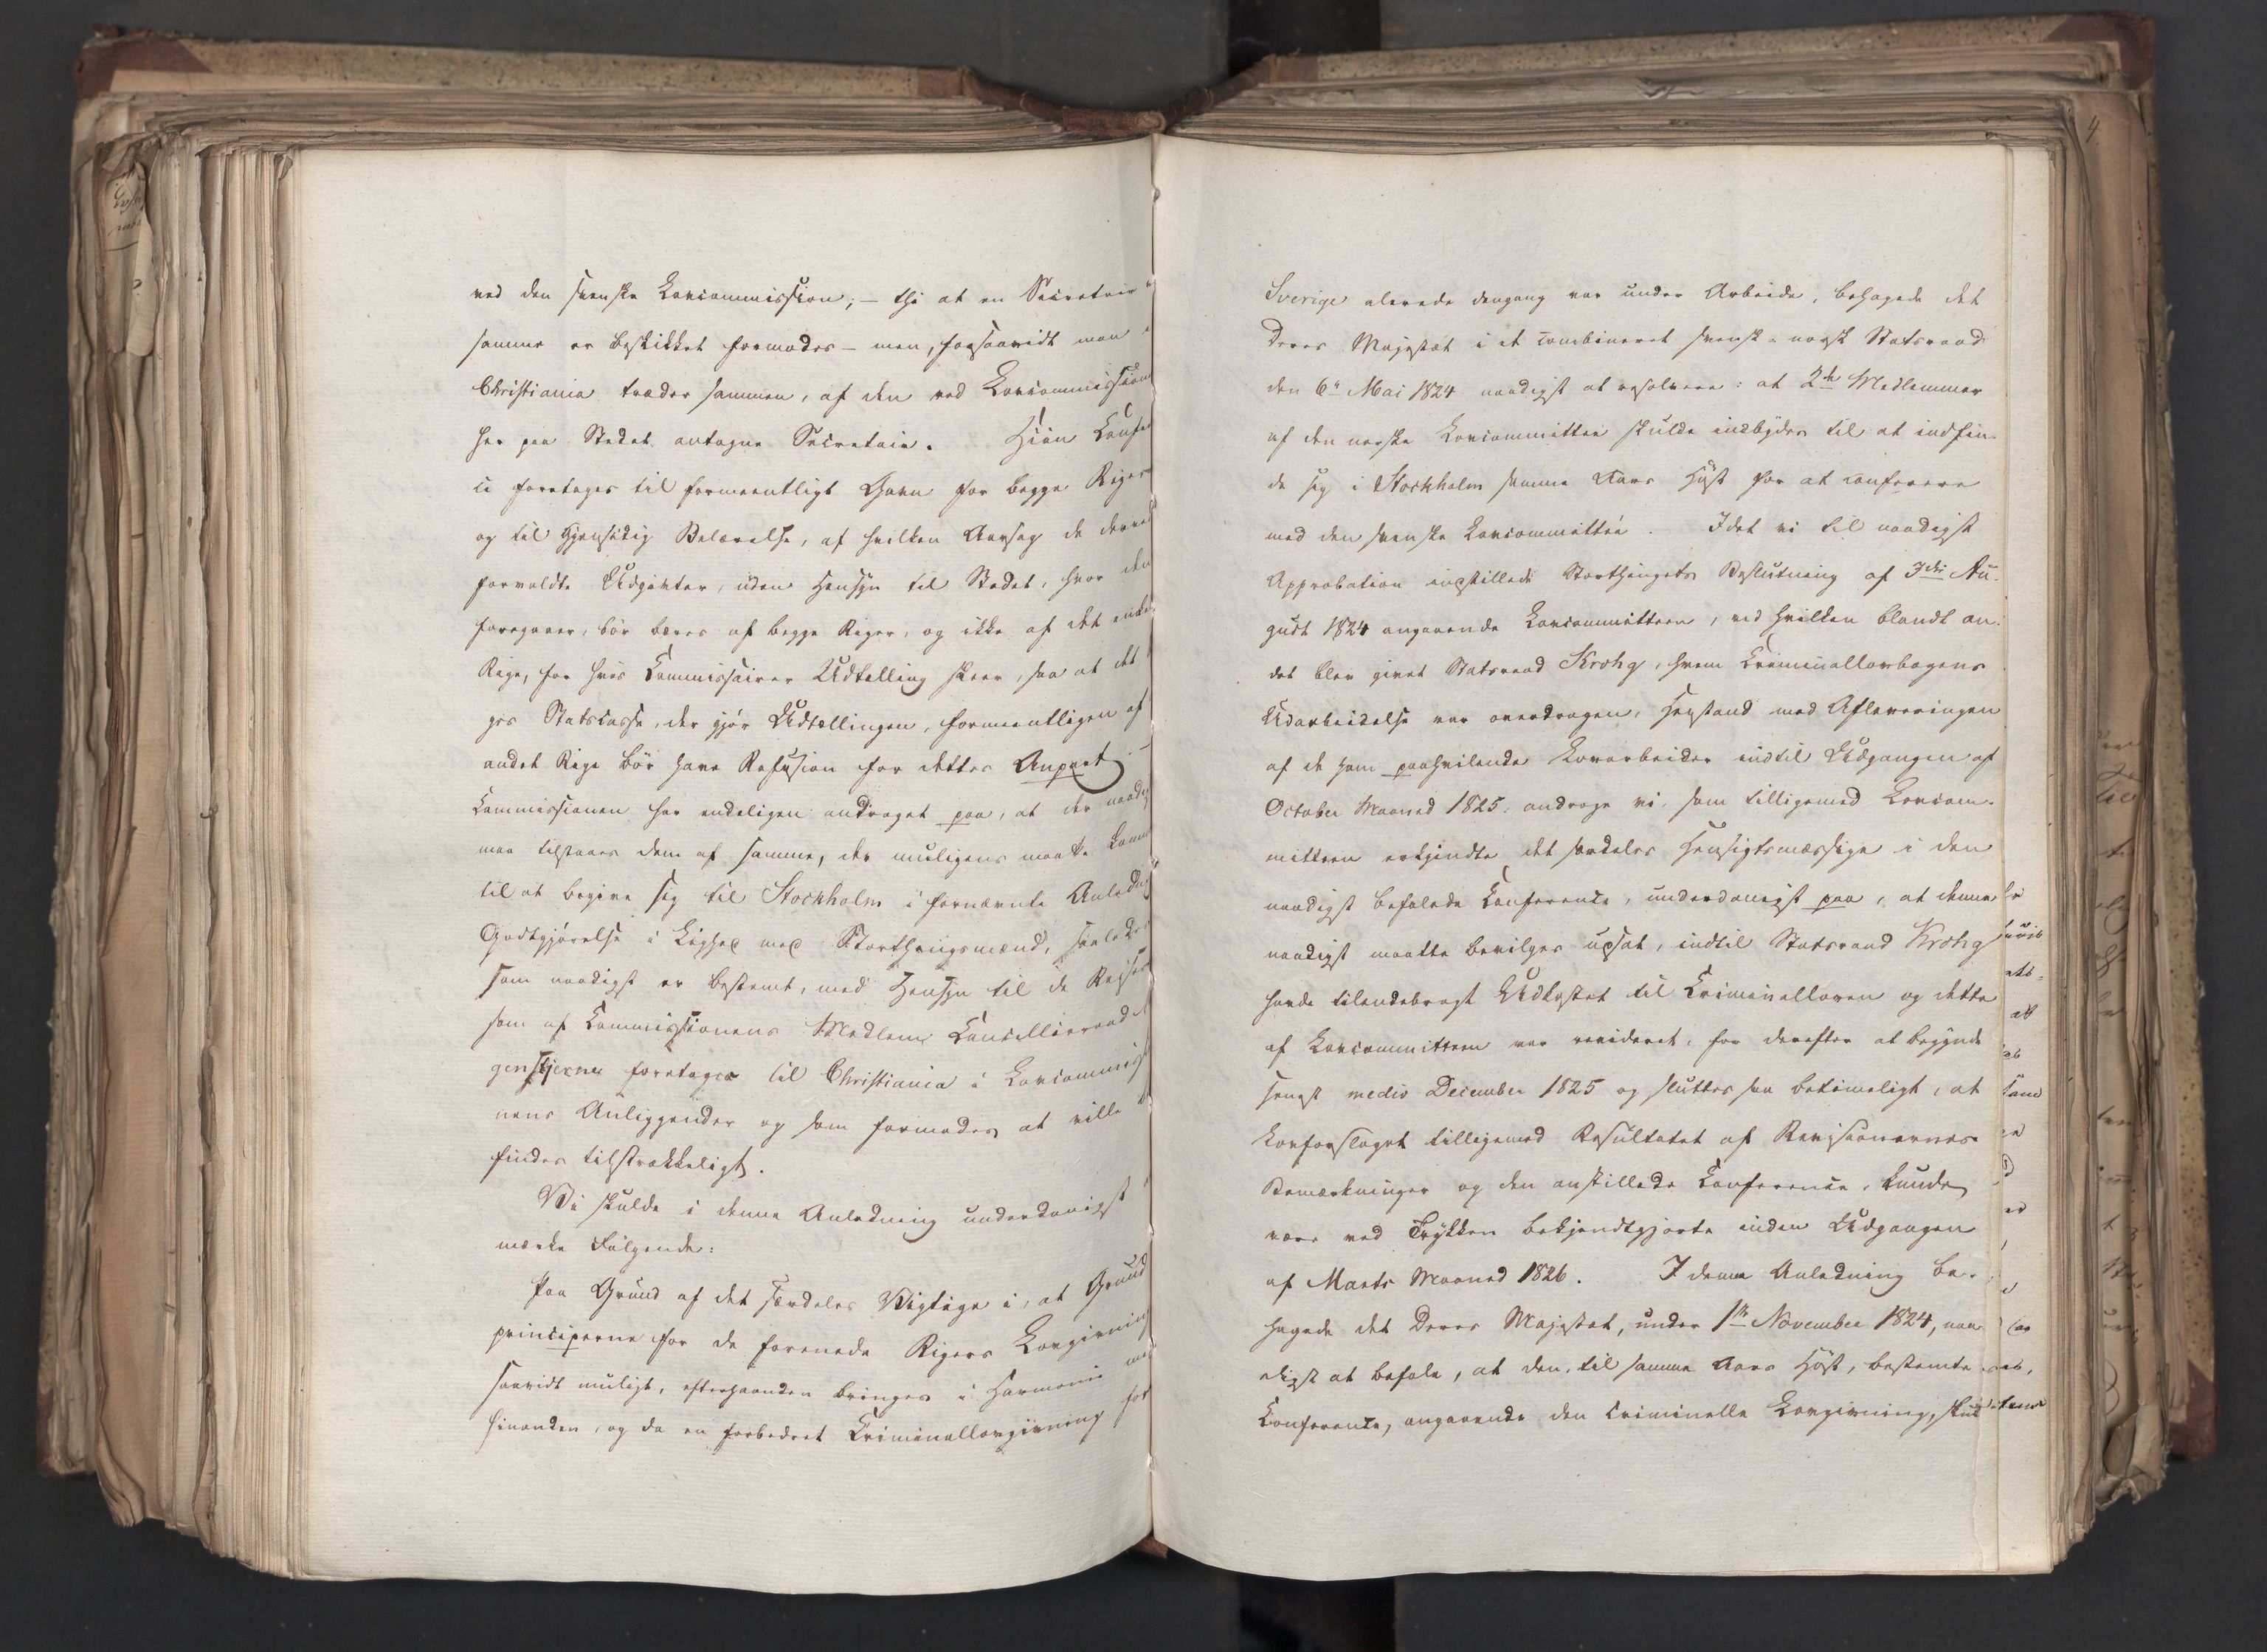 ved den svenske Lovcommission; — thi at en Secretair
samme er beskikket formodes — men, forsaavidt man
Christiania træder sammen, af den ved Lovcommission
her paa Stedet antagne Secretair. Hiin Confe
ce foretages til formeentligt Gavn for begge Riger
og til gjensidig Belærelse, af hvilken Aarsag de derved
forvoldte Udgivter, uden Hensyn til Stedet, hvor den
foregaaer, bör bæres af begge Riger, og ikke af det enke
Rige, for hvis Commissairer Udtælling skeer, saa at det
ges Statscasse, der gjör Udtællingen, formeentligen af
andet Rige bör have Refusion for dettes Anpart
Commissionen har endeligen andraget paa, at der naadig
maa tilstaaes dem af samme, der muligens maatte komme
til at begive sig til Stockholm i fornævnte Anledn
Godtgjörelse i Lighed med Storthingsmænd, saaledes
som naadigst er bestemt, med Hensyn til de Reiser
som af Commissionens Medlem Cancellieraad
genstjerne foretages til Christiania i Lovcommis
nens Anliggender og som formodes at ville
findes tilstrækkeligt.
Vi skulde i denne Anledning underdanigst
mærke Fölgende:
Paa Grund af det særdeles Vigtige i, at Grund
principerne for de forenede Rigers Lovgivning
saavidt muligt, efterhaanden bringes i Harmonie med
hinanden, og da en forbedret Criminallovgivning for
Sverige allerede dengang var under Arbeide, behagede det
Deres Majestæt i et combineret svensk-norsk Statsraad
den 6te Mai 1824 naadigst at resolvere: at 2de Medlemmer
af den norske Lovcommittee skulde indbydes til at indfin-
de sig i Stockholm samme Aars Höst for at conferere
med den svenske Lovcommittée. Idet vi til naadigst
Approbation indstillede Storthingets Beslutning af 3die Au-
gust 1824 angaaende Lovcommitteen, ved hvilken blandt an-
det blev givet Statsraad Krohg, hvem Criminallovbogens
Udarbeidelse var overdragen, Henstand med Afleveringen
af de ham paahvilende Lovarbeider indtil Udgangen af
October Maaned 1825, androge vi, som tilligemed Lovcom-
mitteen erkjendte det særdeles Hensigtsmæssige i den
naadigst befalede Conference, underdanigst paa, at denne
naadigst maatte bevilges udsat, indtil Statsraad Krohg
havde tilendebragt Udkastet til Criminalloven og dette
af Lovcommitteen var revideret, for derefter at begynde
senest medio December 1825 og sluttes saa betimeligt, at
Lovforslaget tilligemed Resultatet af Revisionernes
Bemærkninger og den anstillede Conference, kunde
være ved Trykken bekjendtgjorte inden Udgangen
af Marts Maaned 1826. I denne Anledning be-
hagede det Deres Majestæt, under 1ste November 1824, naa-
digst at befale, at den, til samme Aars Höst, bestemte
Conference, angaaende den criminelle Lovgivning, skul